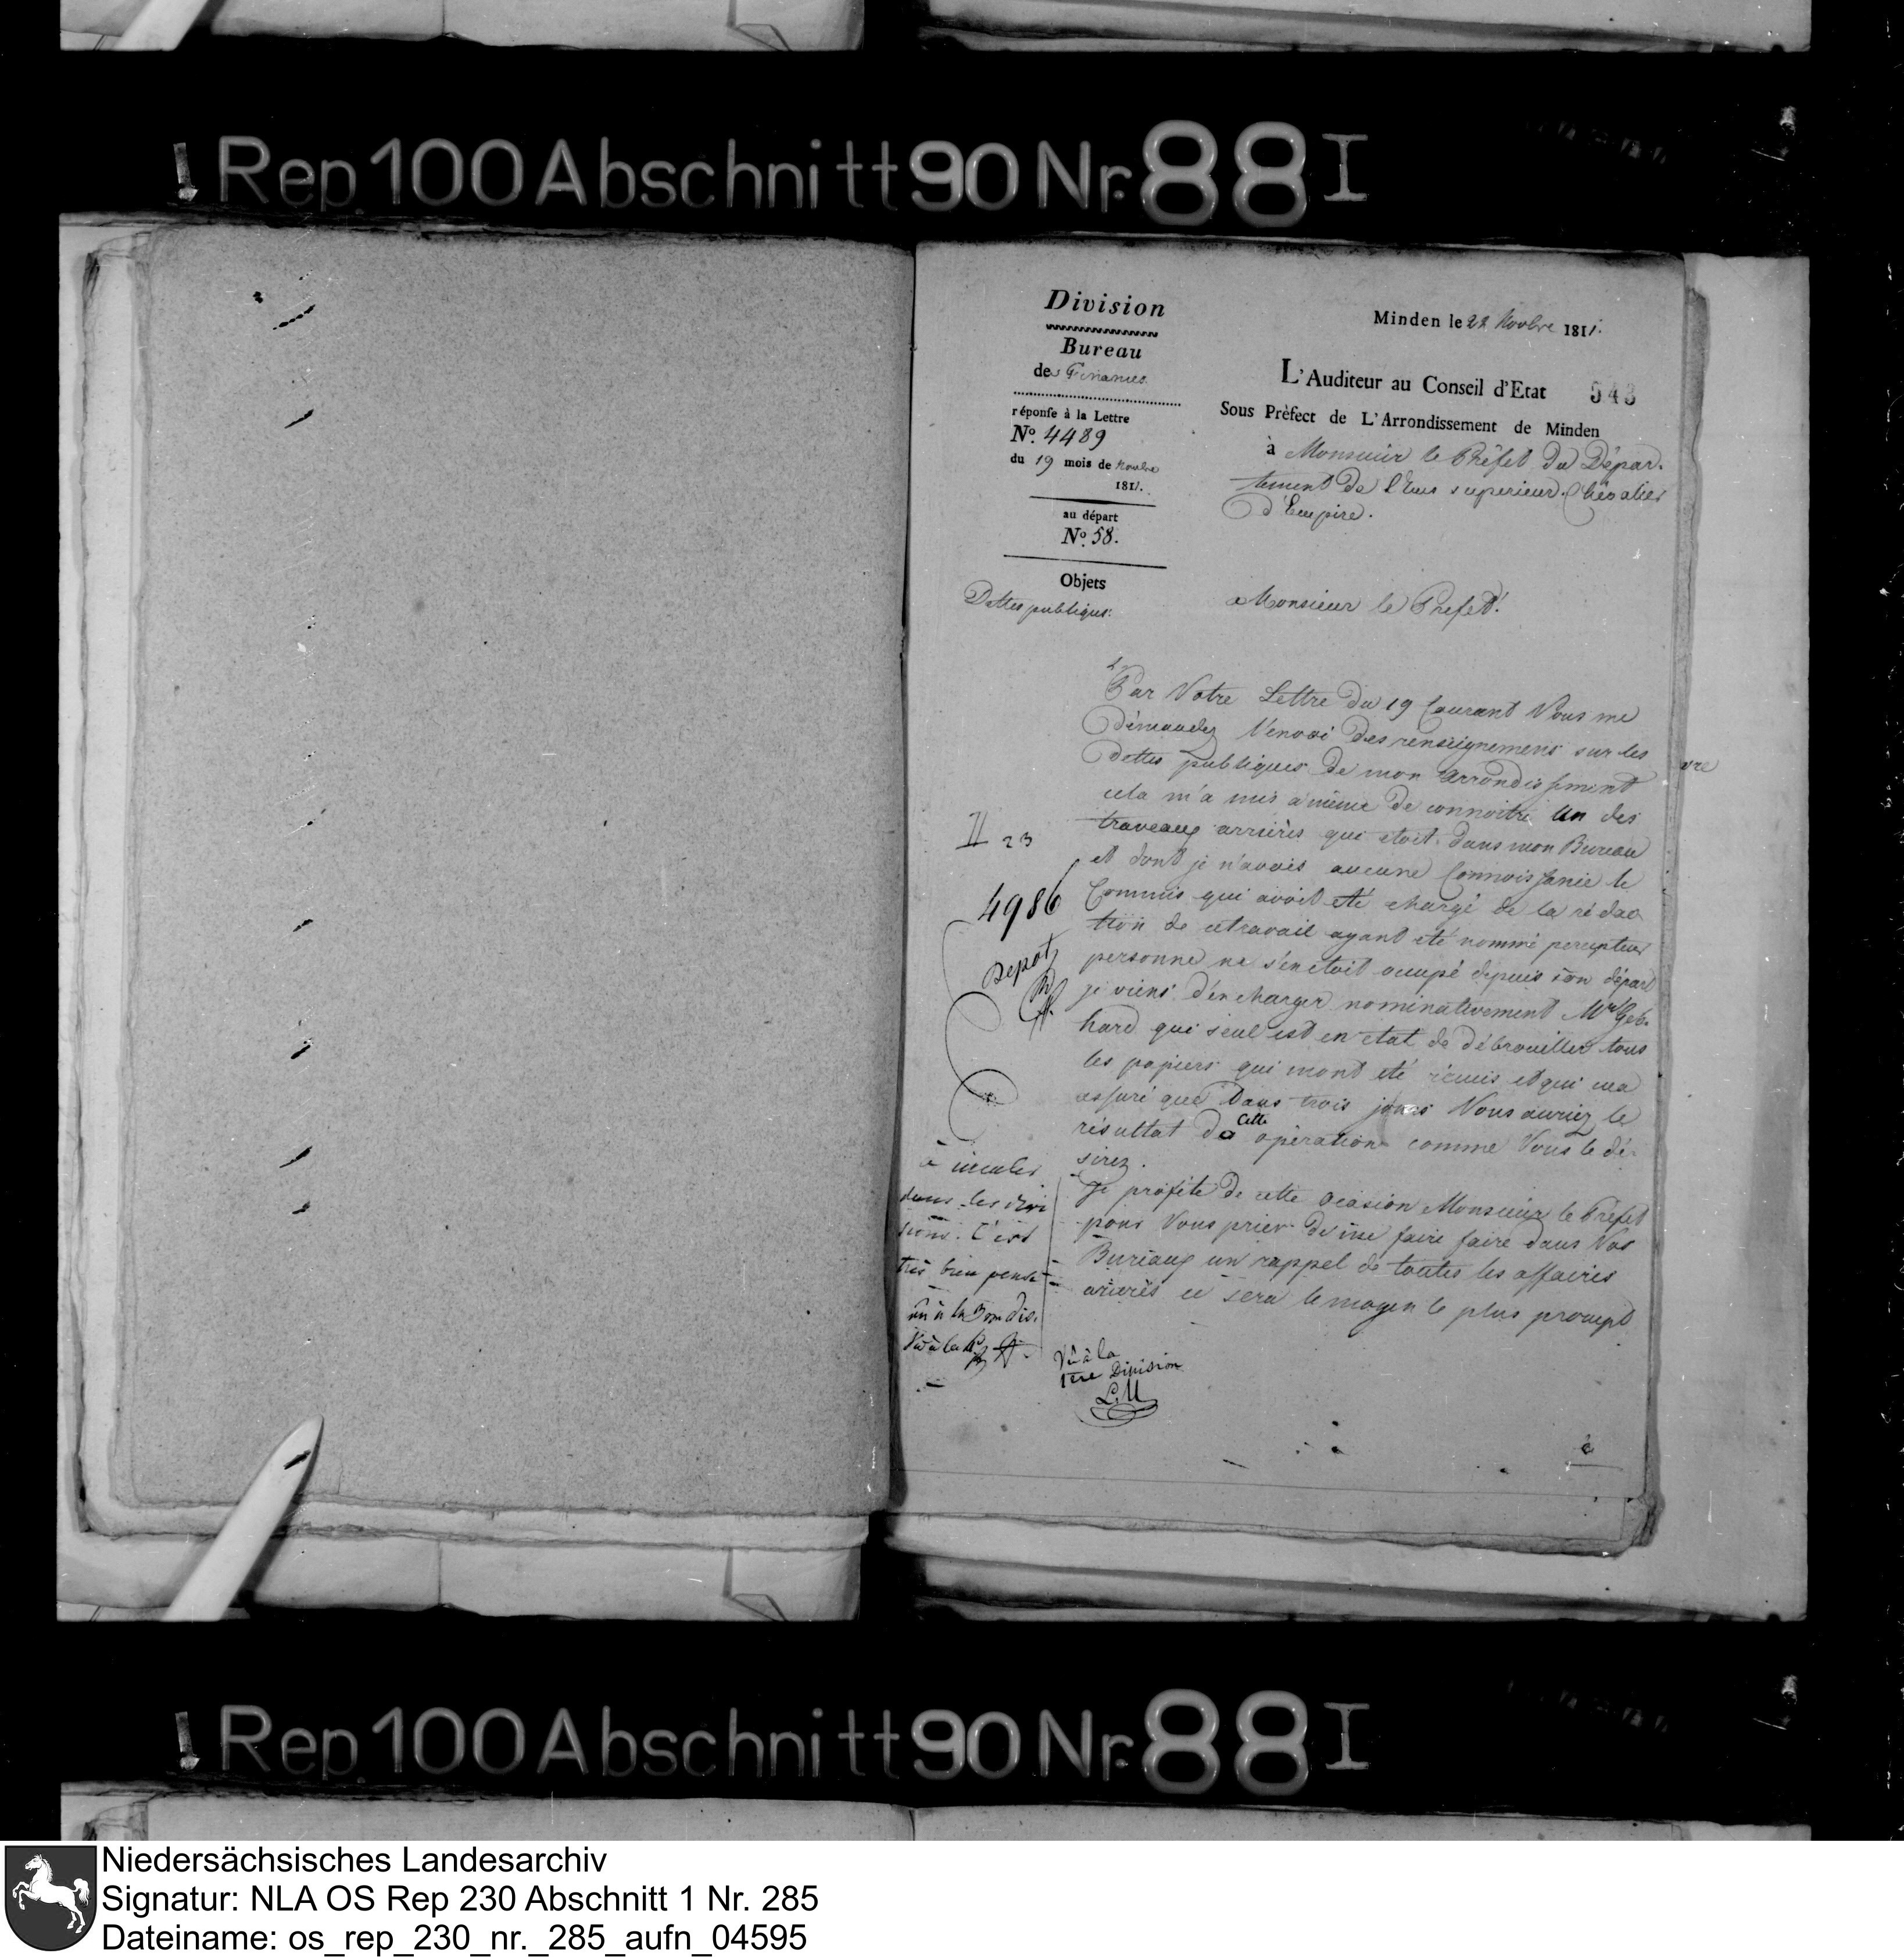 Rep. 100 Abschnitt 90 Nr. 88 I
Division
Bureau
des Finances
réponse à la Lettre
No. 4489
du 19 mois de Novbre
1811.
au départ
No. 58.
Objets
Dettes publiques.
Minden le 22 Novbre 1811.
L'Auditeur au Conseil d'Etat
543
Sous Prèfect de L'Arrondissement de Minden
à Monsieur le Préfet du Dépar-
tement de l'Ems superieur. Chévalier
d'Empire.
Monsieur le Prefet!
Par Votre Lettre du 19 Courant Vous me
démandez l'envoi des renseignemens sur les
dettes publiques de mon arrondissement
cela m'a mis a même de connoitre un des
traveaux arrièrés qui etoit dans mon Bureau
et dont je n'avois aucune Connoissance le
Commis qui avoit eté chargé de la rédac
tion de cetravail ayant eté nommé percepteur
personne ne s'en etoit ocupé depuis son départ
je viens d'en charger nominativement Mr Geb-
hard qui seul est en etat de débrouiller tous
les papiers qui mont eté rémis et qui ma
assuré que dans trois jours Vous auriez le
résultat de Cette opèration comme Vous le dé-
sirez.
Je profite de cette ocasion Monsieur le Préfet
pour Vous prier de me faire faire dans Vos
Buréaux un rappel de toutes les affaires
arierés ce sera le moyen le plus prompt
II 23
4986
Depot
à circuler
dans les divi
sions. C'est
très bien pensé
vu à la 3me dis.
Vu à la
Vû à la
1ere Division
L.M
vre
Rep. 100 Abschnitt 90 Nr. 88 I
Niedersächsisches Landesarchiv
Signatur: NLA OS Rep 230 Abschnitt 1 Nr. 285
Dateiname: os_rep_230_nr._285_aufn_04595